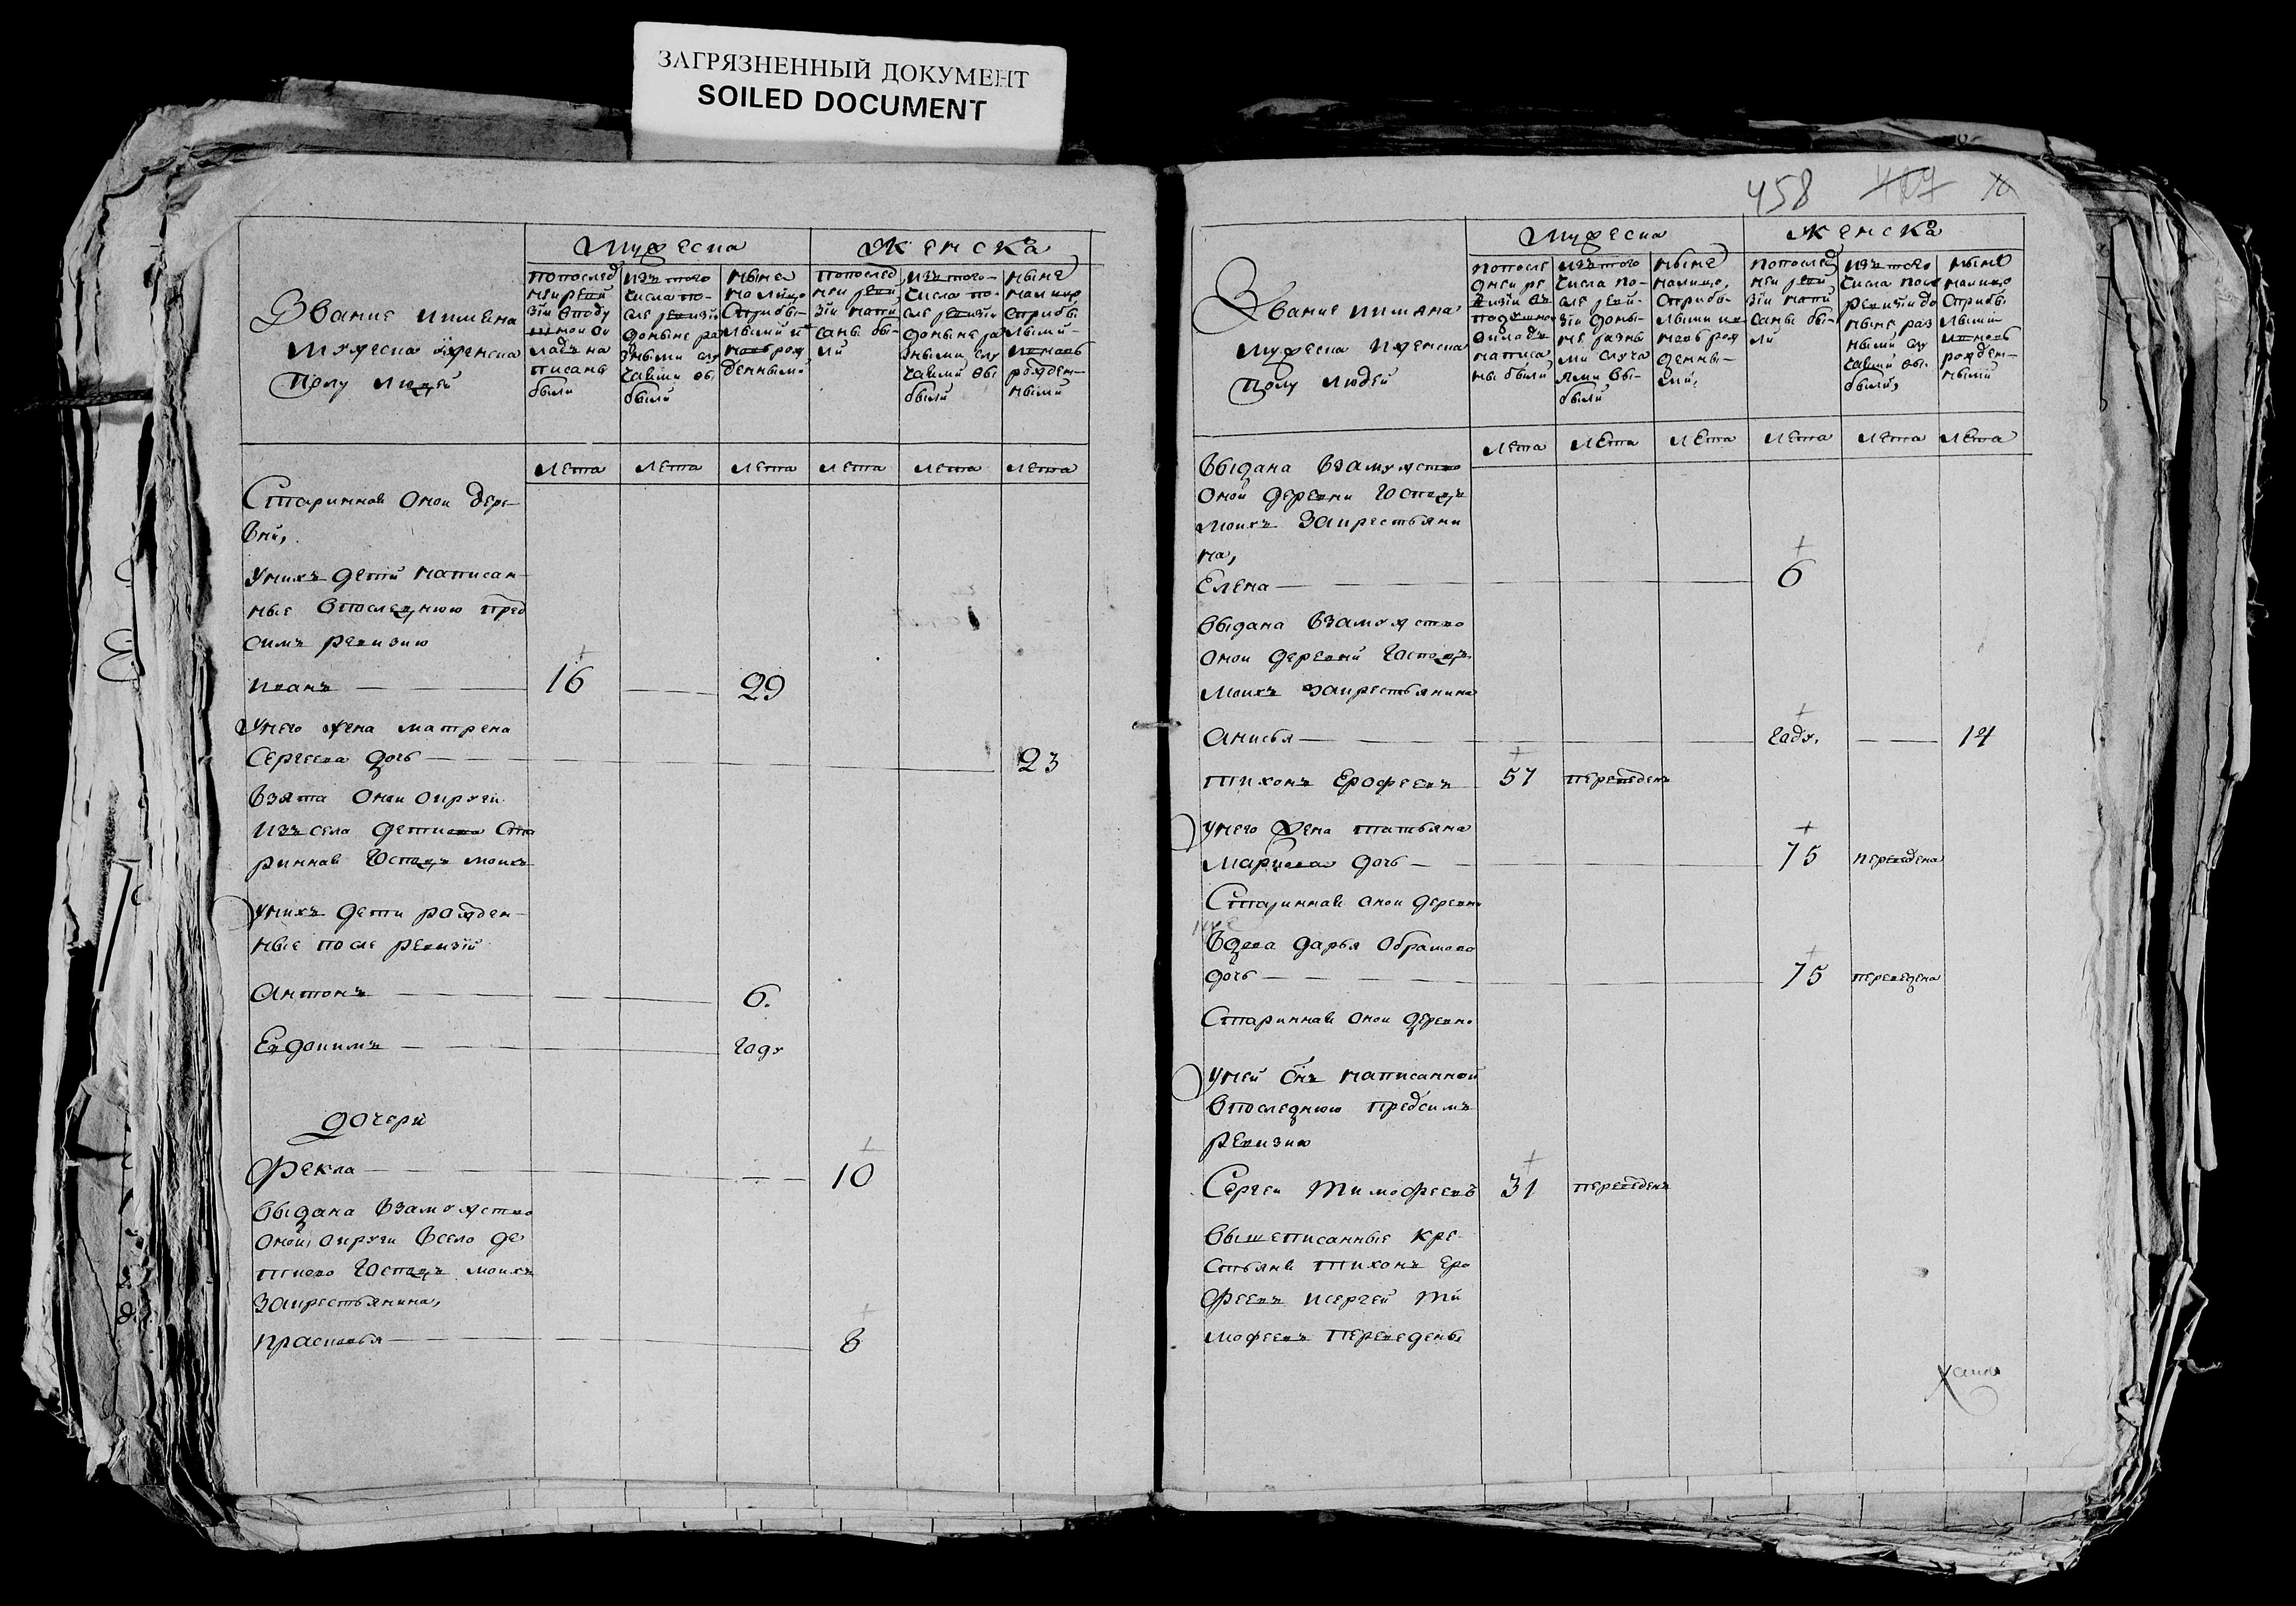 ЗАГРЯЗНЕННЫЙ ДОКУМЕНТ
SOILED DOCUMENT
Звание имяна
мужеска и женска
полу людей
Мужеска
Женска
по послед
ней реви
зіи в поду
шной ок
ладъ на
писаны
были
изъ того
числа по-
сле ревизіи
до ныне ра
зными слу
чаями вы
были
ныне
на лицо
с прибы-
лыми и
новорож
денными
по послед
ней реви
зіи напи
саны бы-
ли
изъ того
числа по-
сле ревизіи
до ныне ра
зными слу
чаями вы
были
ныне
на лицо
с прибы
лыми
и новь
рожден-
ными
лета лета лета лета лета лета
Старинная оной дере-
вни,
У нихъ дети написан-
ные в последнюю пред
симъ ревизию
Иванъ 16 29
У него жена Матрена
Сергеева дочь 23
взята оной округи
изъ села Старинная господъ моихъ
У нихъ дети рожден-
ные после ревизіи
Антонъ 6.
Евдокимъ году
Дочери
Фекла 10
выдана в замужство
оной округи в село де
господъ моихъ
за крестьянина,
Прасковья 8
458
Звание имяна
мужеска и женска
полу людей
Мужеска
Женска
по после
дней ре
визіи въ
подушной
окладъ
написа
ны были
изъ того
числа по-
сле реви-
зіи доны-
не разны
ми случа
ями вы-
были
ныне
на лицо,
с прибы-
лыми и
новь рож
денны-
ми,
по послед
ней реви
зіи напи
саны бы-
ли
изъ того
числа после
ревизіи до
ныне раз
ными слу
чаями вы
были,
ныне
на лицо
с прибы
лыми
и новь
рожден-
ными
лета лета лета лета лета лета
выдана в замужство
оной деревни господъ
моихъ за крестьяни
на,
Елена 6
выдана в замужство
оной деревни господъ
моихъ за крестьянина
Анисья году, 14
Тихонъ Ерофеевъ 57 переведенъ
У него жена Татьяна
Маркова дочь 75 переведена
Старинная оной деревни
вдова Дарья Обрамова
дочь 75 переведена
Старинная оной деревни
У ней сынъ написанной
в последнюю предсимъ
ревизию
Сергеи Тимофеевъ 31 переведенъ
вышеписанные кре
стьяня Тихонъ Еро
феевъ и Сергей Ти
мофеевъ переведены